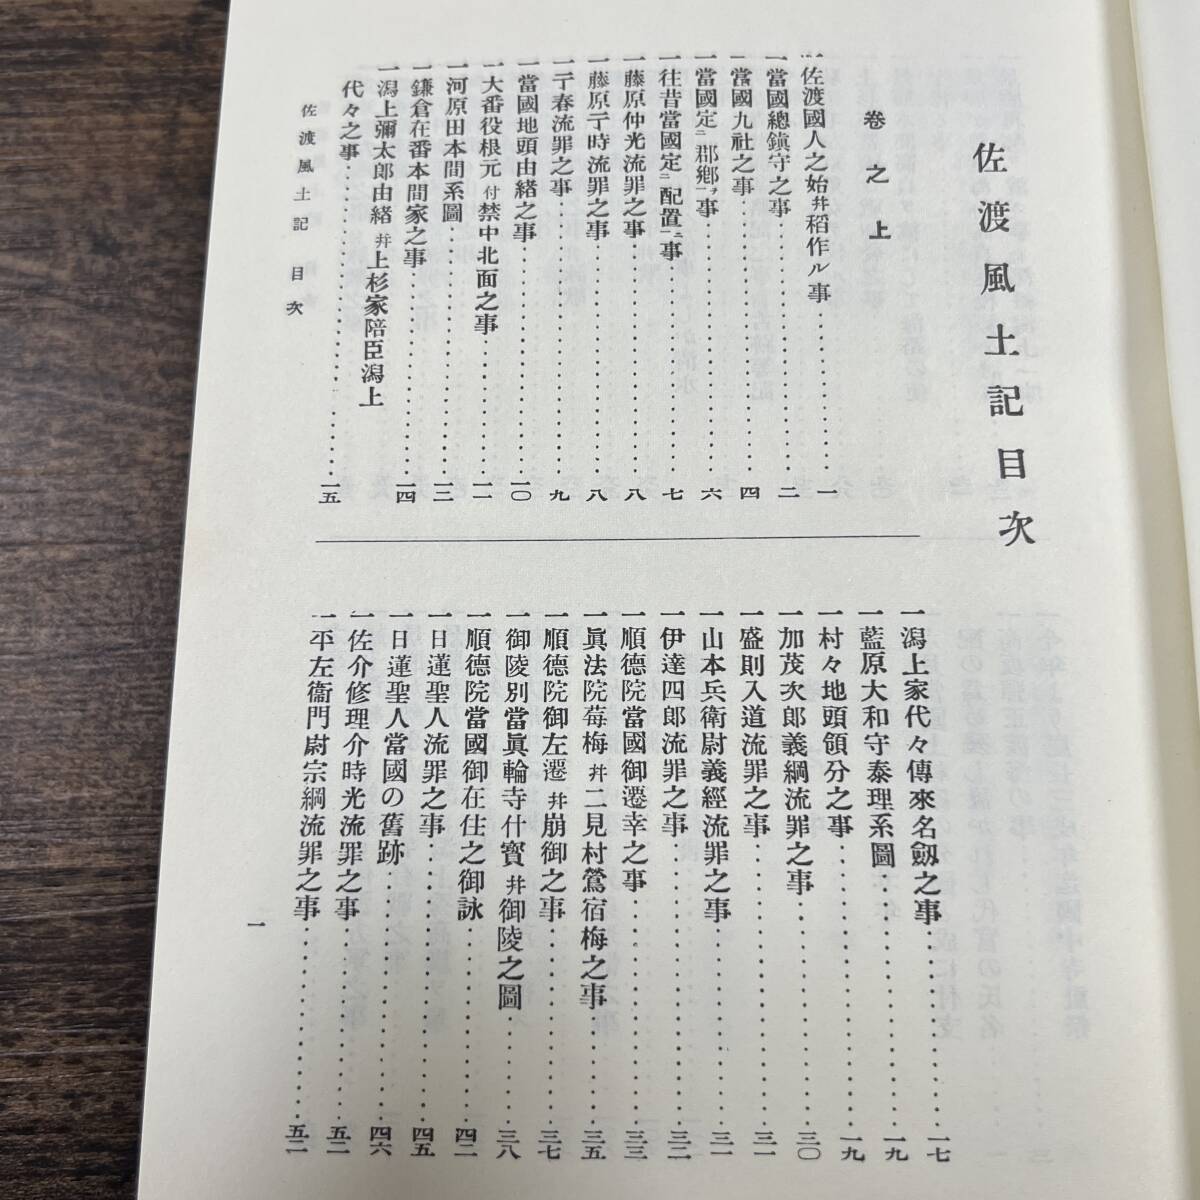 佐渡風土記目次
卷之上
一佐渡國人之始幷稻作ル事‥‥‥‥‥一
一當國總鎭守之事‥‥‥‥‥二
一當國九社之事‥‥‥‥‥四
一當國定ニ郡鄕一ヲ事‥‥‥‥‥六
一往昔當國定ニ配置一ヲ事‥‥‥‥‥七
一藤原仲光流罪之事‥‥‥‥‥八
一藤原亍時流罪之事‥‥‥‥‥八
一亍春流罪之事‥‥‥‥‥九
一當國地頭由緒之事‥‥‥‥‥一〇
一大番役根元付禁中北面之事‥‥‥‥‥一一
一河原田本間系圖‥‥‥‥‥一三
一鎌倉在番本間家之事‥‥‥‥‥一四
一潟上彌太郎由緒幷上杉家陪臣潟上
代々之事‥‥‥‥‥一五
一潟上家代々傳來名劔之事‥‥‥‥‥一七
一藍原大和守泰理系圖‥‥‥‥‥一九
一村々地頭領分之事‥‥‥‥‥一九
一加茂次郎義綱流罪之事‥‥‥‥‥三〇
一盛則入道流罪之事‥‥‥‥‥三一
一山本兵衛尉義經流罪之事‥‥‥‥‥三一
一伊達四郎流罪之事‥‥‥‥‥三二
一順德院當國御遷幸之事‥‥‥‥‥三三
一眞法院莓梅幷二見村鶯宿梅之事‥‥‥‥‥三五
一順德院御左遷幷崩御之事‥‥‥‥‥三七
一御陵別當眞輪寺什寳幷御陵之圖‥‥‥‥‥三八
一順德院當國御在住之御詠‥‥‥‥‥四二
一日蓮聖人流罪之事‥‥‥‥‥四五
一日蓮聖人當國の舊跡‥‥‥‥‥四六
一佐介修理介時光流罪之事‥‥‥‥‥五二
一平左衞門尉宗綱流罪之事‥‥‥‥‥五二
佐渡風土記 目次
一